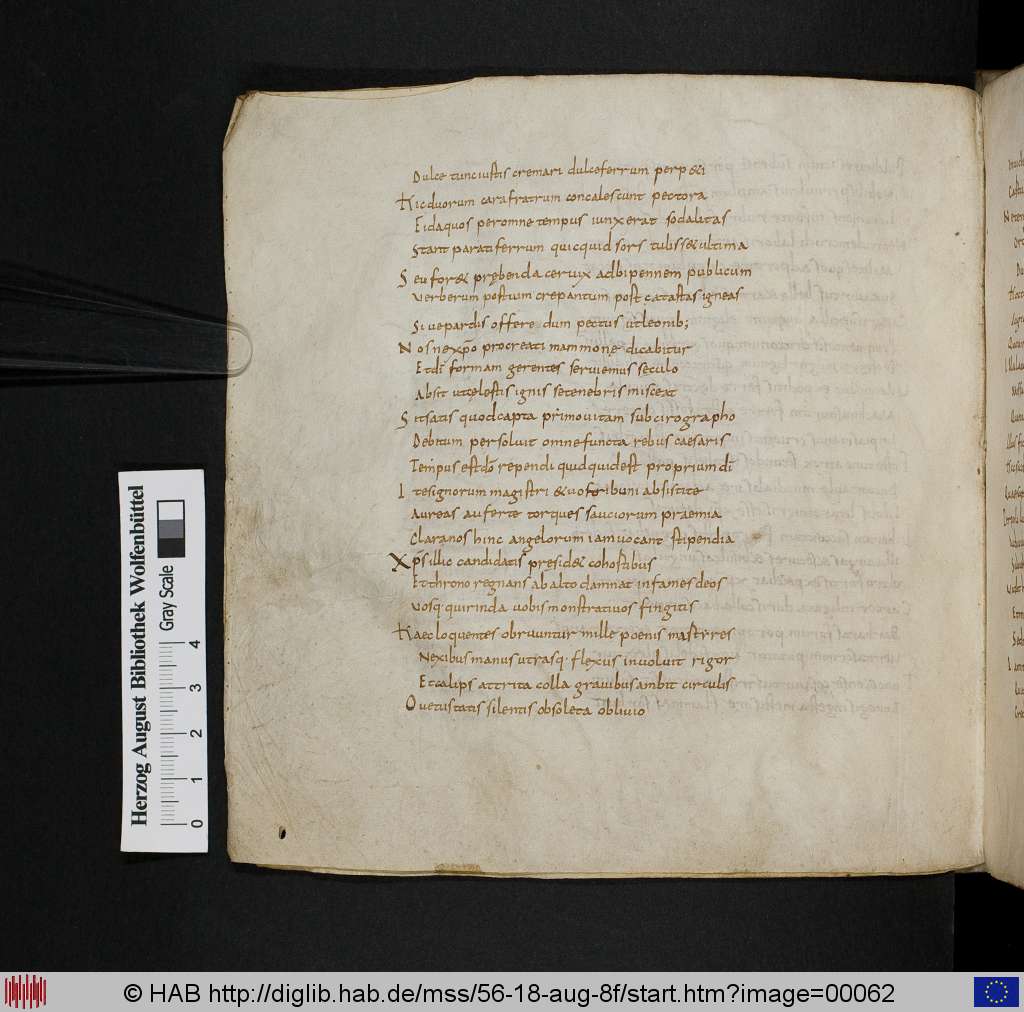 Dulce tunc iustis cremari dulce ferrum perp&i
Hic duorum cara fratrum concalescunt pectora
Fida quos per omne tempus iunxerat sodalitas
Stant parati ferrum quicquid sors tuliss& ultima
Seu for& prębenda ceruix ad bipennem publicum
Verberum post uim crepantum post catastas igneas
Siue pardis offerre dum pectus ut leonib;
Nos ne xp̄o procreati mammone dicabitur
Et dī formam gerentes seruiemus seculo
Absit ut celestis ignis se tenebris misceat
Sit satis quod capta primo uitam sub cirographo
Debitum persoluit omne functa rebus caesaris
Tempus est dō rependi quidquid est proprium dī
Ite signorum magistri & uos tribuni absistite
Aureas auferte torques sauciorum praemia
Clara nos hinc angelorum iam uocant stipendia
Xp̄s illic candidatis pręsid& cohostibus
Et throno regnans ab alto damnat infames deos
Vosq· qui rinda uobis monstratiuos fingitis
Haec loquentes obruuntur mille poenis martyres
Nexibus manus utrasq· flexus inuoluit rigor
Et calips attrita colla grauibus ambit circulis
O uetustatis silentis obsoleta obliuio
Herzog August Bibliothek Wolfenbüttel
Gray Scale
0 1 2 3 4
© HAB http://diglib.hab.de/mss/56-18-aug-8f/start.htm?image=00062